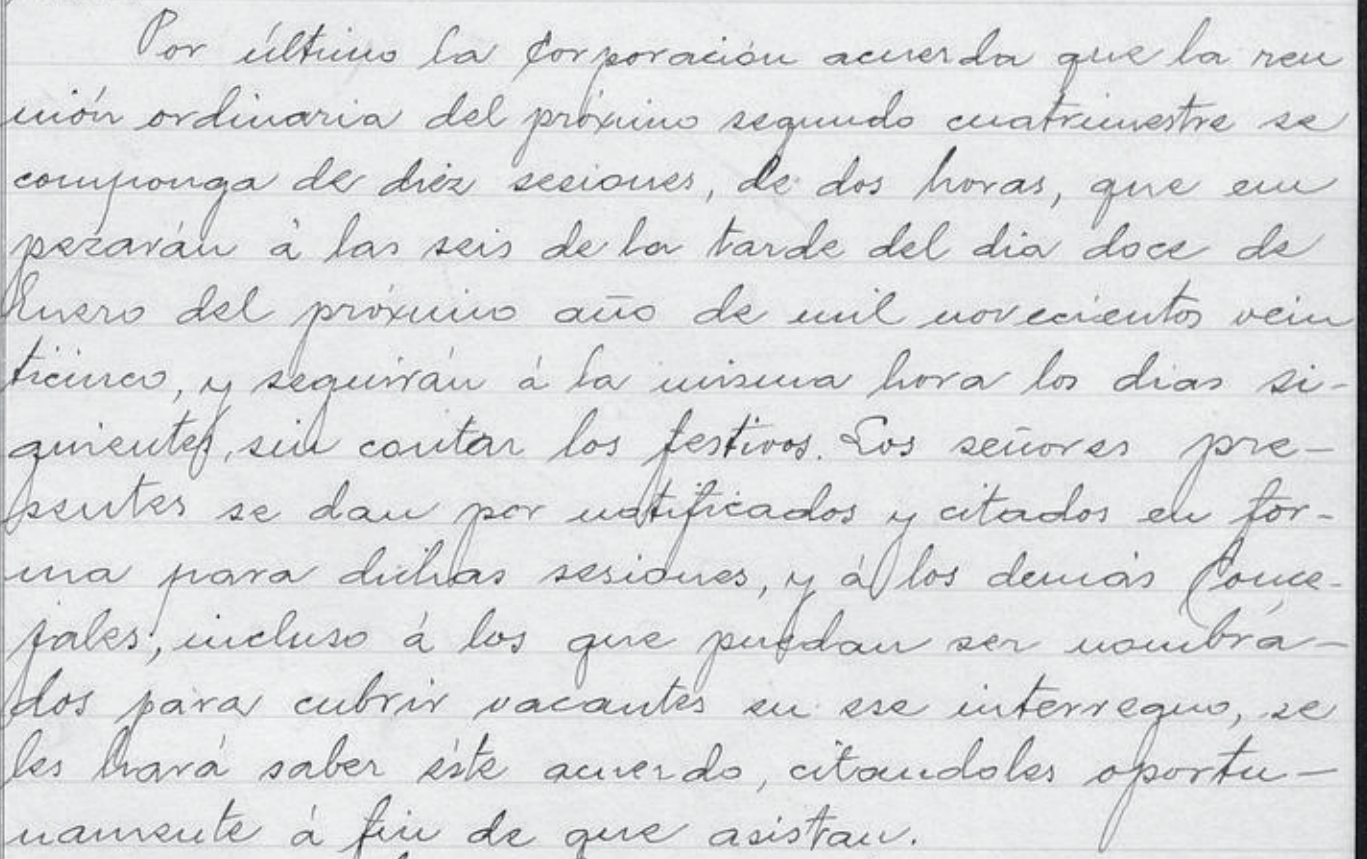 Por último la Corporación acuerda que la reu
nión ordinaria del próximo segundo cuatrimestre se
componga de diez sesiones, de dos horas, que em
pezarán á las seis de la tarde del dia doce de
Enero del próximo año de mil novecientos vein
ticinco, y seguirán á la misma hora los dias si-
guientes, sin contar los festivos. Los señores pre-
sentes se dan por notificados y citados en for-
ma para dichas sesiones, y á los demás Conce-
jales, incluso á los que puedan ser nombra-
dos para cubrir vacantes en ese interregno, se
les hará saber éste acuerdo, citandoles oportu-
namente á fin de que asistan.